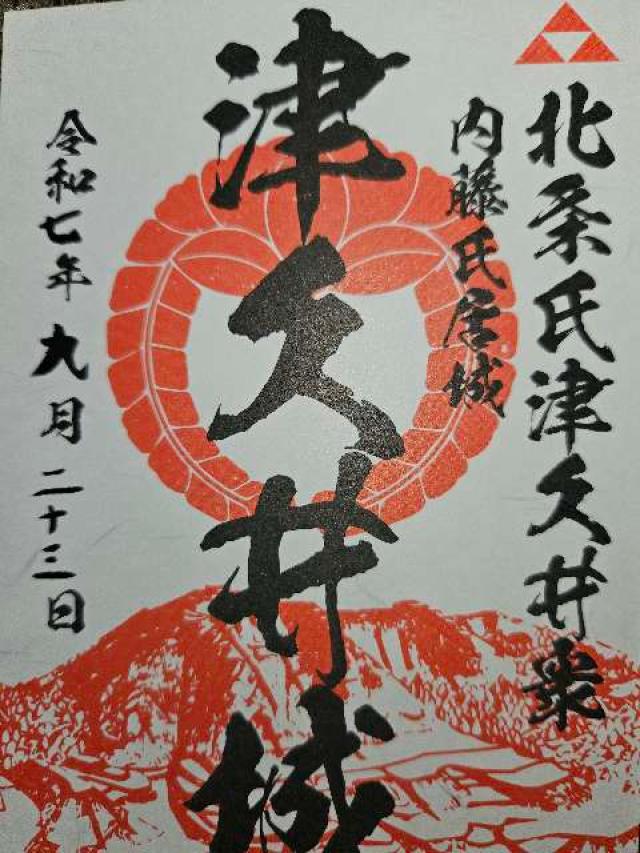 北条氏津久井衆
内藤氏居城
津久井城
令和七年九月二十三日